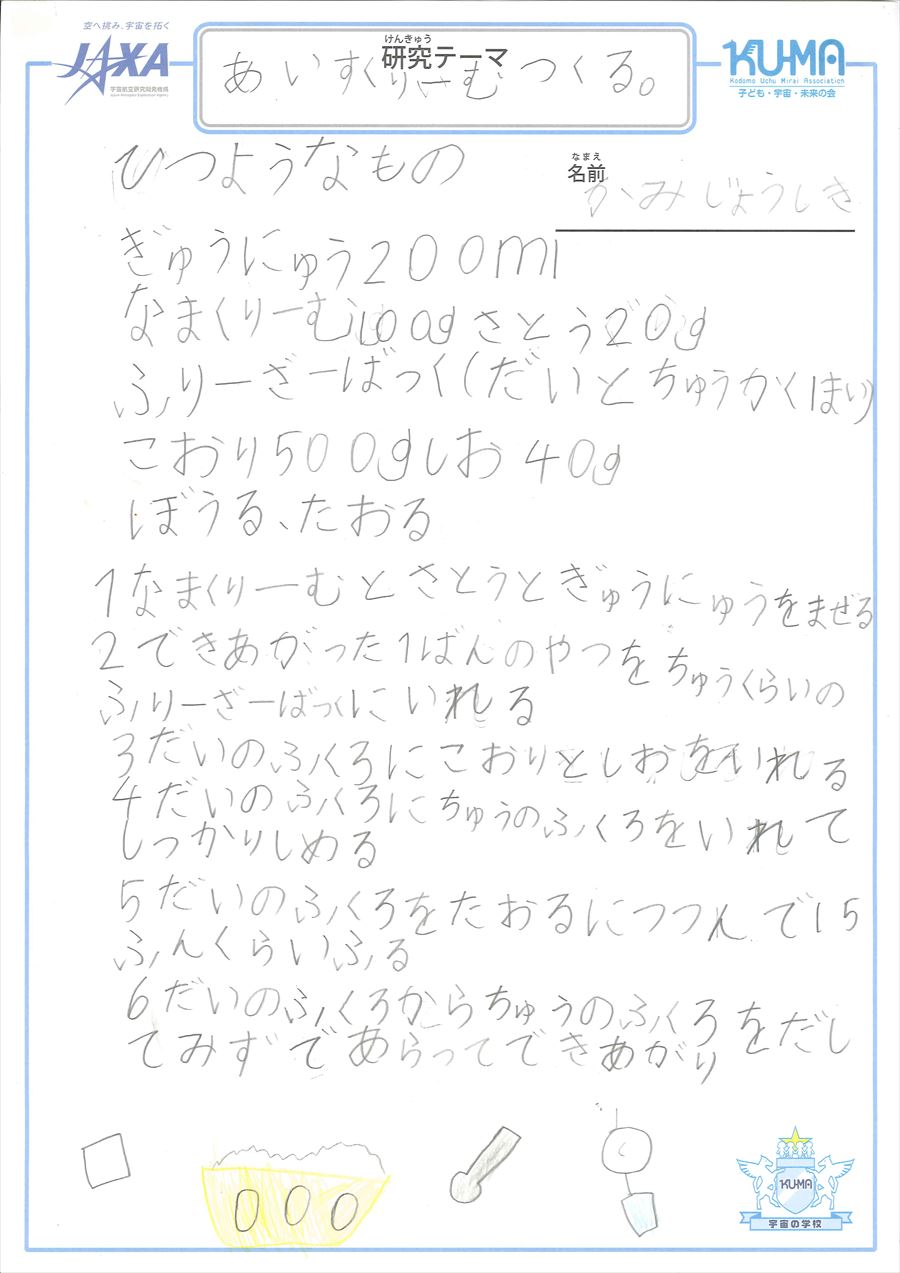 空へ挑み、宇宙を拓く
JAXA
宇宙航空研究開発機構
Japan Aerospace Exploration Agency
けんきゅう
研究テーマ
あいすくりーむつくる。
KUMA
Kodomo Uchu Mirai Association
子ども・宇宙・未来の会
ひつようなもの
なまえ
名前
かみじょうしき
ぎゅうにゅう200ml
なまくりーむ100gさとう20g
ふりーざーばっく(だいとちゅうかくはい)
こおり500gしお40g
ぼうる、たおる
1なまくりーむとさとうとぎゅうにゅうをまぜる
2できあがった1ばんのやつをちゅうくらいの
ふりーざーばっくにいれる
3だいのふくろにこおりとしおをいれる
4だいのふくろにちゅうのふくろをいれて
しっかりしめる
5だいのふくろをたおるにつつんで15
ふんくらいふる
6だいのふくろからちゅうのふくろをだし
てみずであらってできあがり
KUMA
宇宙の学校